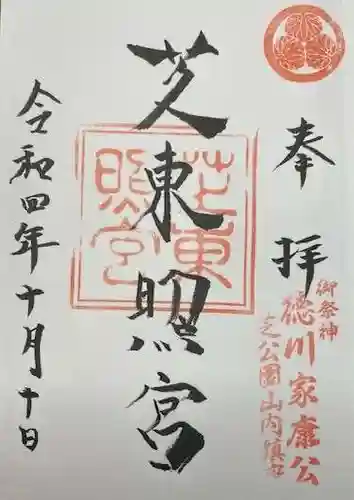 奉拝
御祭神
徳川家康公
芝公園山内鎮守
芝東照宮
芝東照宮
令和四年十月十日